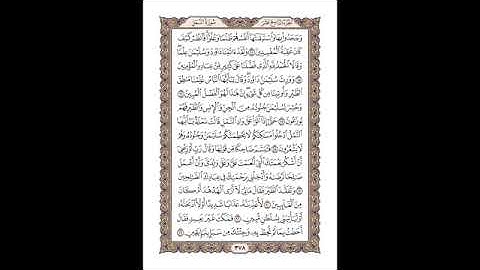 الجزء التاسع عشر سورة النمل
وَجَحَدُوا۟ بِهَا وَٱسْتَيْقَنَتْهَآ أَنفُسُهُمْ ظُلْمًا وَعُلُوًّا ۚ فَٱنظُرْ كَيْفَ
كَانَ عَٰقِبَةُ ٱلْمُفْسِدِينَ ١٤ وَلَقَدْ ءَاتَيْنَا دَاوُۥدَ وَسُلَيْمَٰنَ عِلْمًا ۖ
وَقَالَا ٱلْحَمْدُ لِلَّهِ ٱلَّذِى فَضَّلَنَا عَلَىٰ كَثِيرٍ مِّنْ عِبَادِهِ ٱلْمُؤْمِنِينَ
١٥ وَوَرِثَ سُلَيْمَٰنُ دَاوُۥدَ ۖ وَقَالَ يَٰٓأَيُّهَا ٱلنَّاسُ عُلِّمْنَا مَنطِقَ
ٱلطَّيْرِ وَأُوتِينَا مِن كُلِّ شَىْءٍ ۖ إِنَّ هَٰذَا لَهُوَ ٱلْفَضْلُ ٱلْمُبِينُ ١٦
وَحُشِرَ لِسُلَيْمَٰنَ جُنُودُهُۥ مِنَ ٱلْجِنِّ وَٱلْإِنسِ وَٱلطَّيْرِ فَهُمْ
يُوزَعُونَ ١٧ حَتَّىٰٓ إِذَآ أَتَوْا۟ عَلَىٰ وَادِ ٱلنَّمْلِ قَالَتْ نَمْلَةٌ يَٰٓأَيُّهَا
ٱلنَّمْلُ ٱدْخُلُوا۟ مَسَٰكِنَكُمْ لَا يَحْطِمَنَّكُمْ سُلَيْمَٰنُ وَجُنُودُهُۥ وَهُمْ
لَا يَشْعُرُونَ ١٨ فَتَبَسَّمَ ضَاحِكًا مِّن قَوْلِهَا وَقَالَ رَبِّ أَوْزِعْنِىٓ
أَنْ أَشْكُرَ نِعْمَتَكَ ٱلَّتِىٓ أَنْعَمْتَ عَلَىَّ وَعَلَىٰ وَٰلِدَىَّ وَأَنْ أَعْمَلَ
صَٰلِحًا تَرْضَىٰهُ وَأَدْخِلْنِى بِرَحْمَتِكَ فِى عِبَادِكَ ٱلصَّٰلِحِينَ
١٩ وَتَفَقَّدَ ٱلطَّيْرَ فَقَالَ مَا لِىَ لَآ أَرَى ٱلْهُدْهُدَ أَمْ كَانَ
مِنَ ٱلْغَآئِبِينَ ٢٠ لَأُعَذِّبَنَّهُۥ عَذَابًا شَدِيدًا أَوْ لَأَا۟ذْبَحَنَّهُۥٓ
أَوْ لَيَأْتِيَنِّى بِسُلْطَٰنٍ مُّبِينٍ ٢١ فَمَكَثَ غَيْرَ بَعِيدٍ فَقَالَ
أَحَطتُ بِمَا لَمْ تُحِطْ بِهِۦ وَجِئْتُكَ مِن سَبَإٍۭ بِنَبَإٍ يَقِينٍ ٢٢
٣٧٨